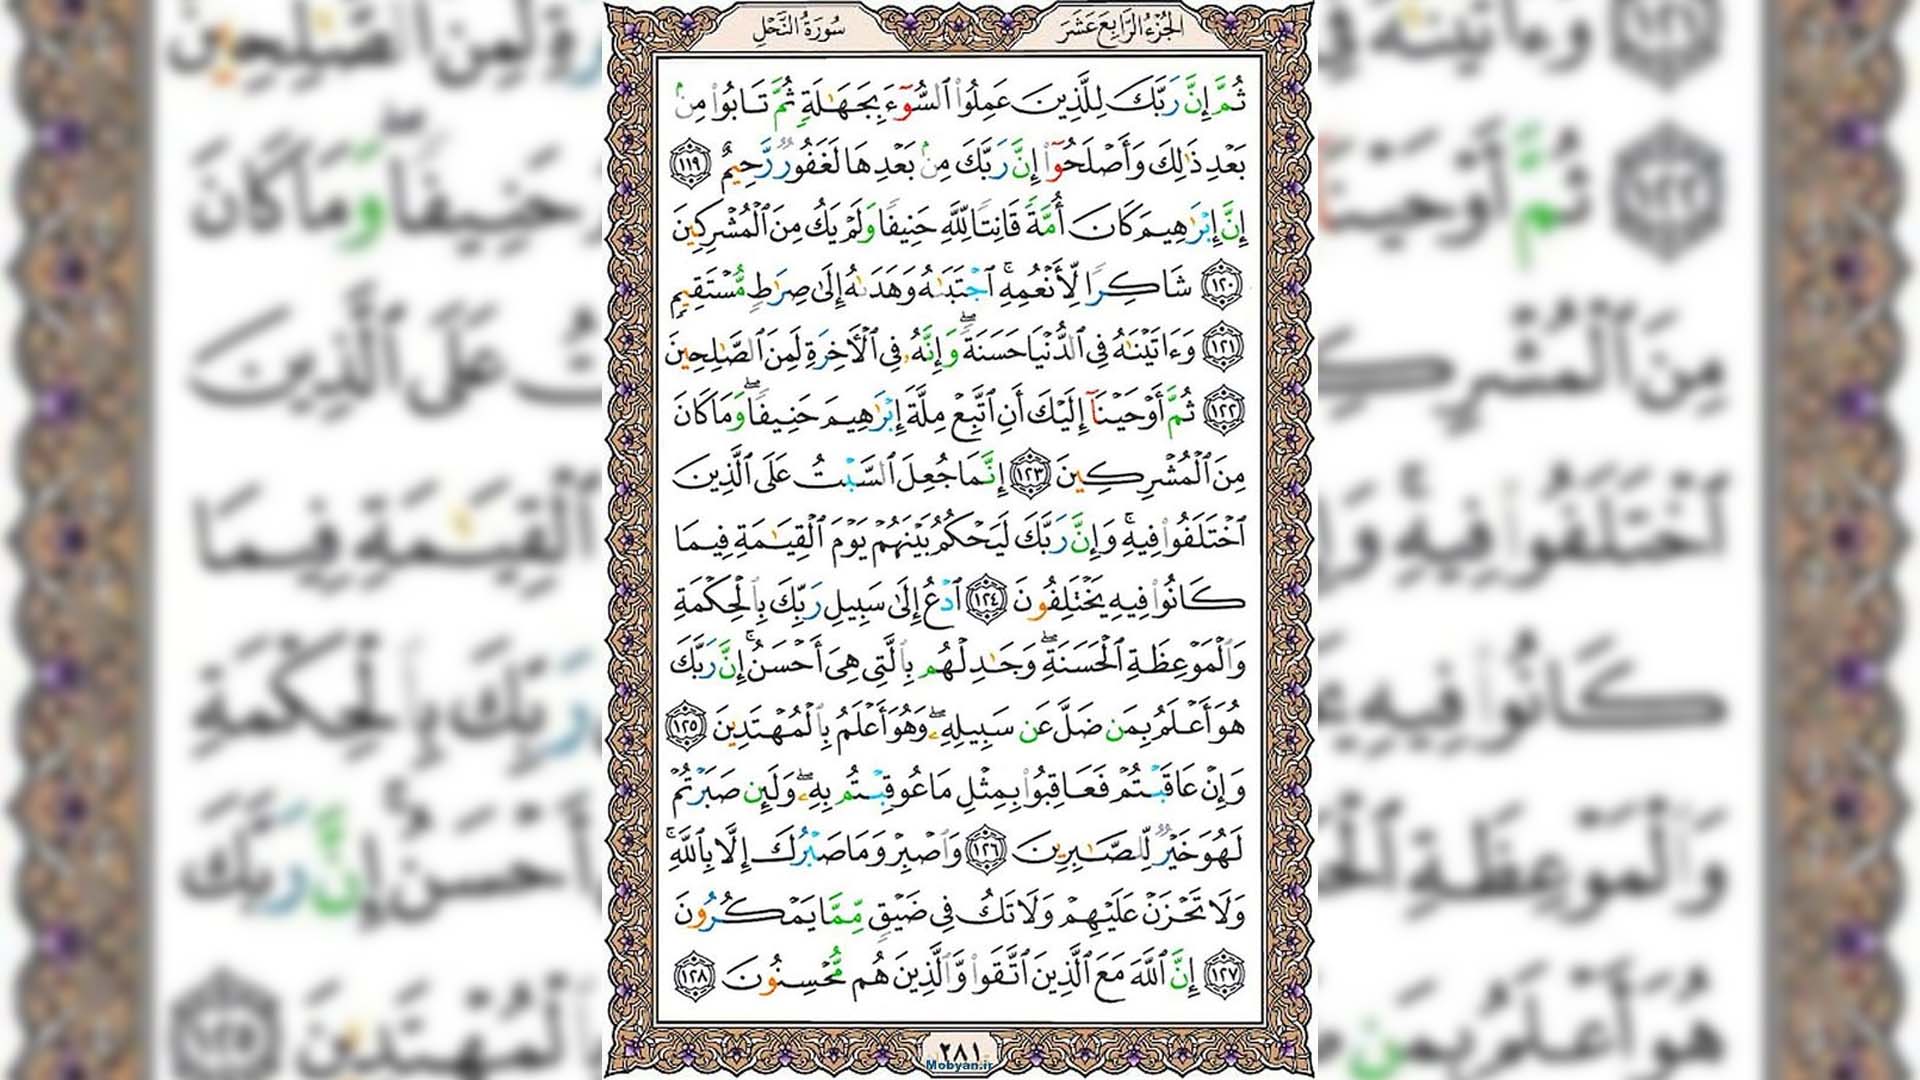 الجزء الرابع عشر
سورة النحل
ثُمَّ إِنَّ رَبَّكَ لِلَّذِينَ عَمِلُوا۟ ٱلسُّوٓءَ بِجَهَـٰلَةٍ ثُمَّ تَابُوا۟ مِنۢ
بَعْدِ ذَٰلِكَ وَأَصْلَحُوٓا۟ إِنَّ رَبَّكَ مِنۢ بَعْدِهَا لَغَفُورٌ رَّحِيمٌ ١١٩
إِنَّ إِبْرَٰهِيمَ كَانَ أُمَّةً قَانِتًا لِّلَّهِ حَنِيفًا وَلَمْ يَكُ مِنَ ٱلْمُشْرِكِينَ
١٢٠ شَاكِرًا لِّأَنْعُمِهِ ۚ ٱجْتَبَىٰهُ وَهَدَىٰهُ إِلَىٰ صِرَٰطٍ مُّسْتَقِيمٍ
١٢١ وَءَاتَيْنَـٰهُ فِى ٱلدُّنْيَا حَسَنَةً ۖ وَإِنَّهُۥ فِى ٱلْـَٔاخِرَةِ لَمِنَ ٱلصَّـٰلِحِينَ
١٢٢ ثُمَّ أَوْحَيْنَآ إِلَيْكَ أَنِ ٱتَّبِعْ مِلَّةَ إِبْرَٰهِيمَ حَنِيفًا ۖ وَمَا كَانَ
مِنَ ٱلْمُشْرِكِينَ ١٢٣ إِنَّمَا جُعِلَ ٱلسَّبْتُ عَلَى ٱلَّذِينَ
ٱخْتَلَفُوا۟ فِيهِ ۚ وَإِنَّ رَبَّكَ لَيَحْكُمُ بَيْنَهُمْ يَوْمَ ٱلْقِيَـٰمَةِ فِيمَا
كَانُوا۟ فِيهِ يَخْتَلِفُونَ ١٢٤ ٱدْعُ إِلَىٰ سَبِيلِ رَبِّكَ بِٱلْحِكْمَةِ
وَٱلْمَوْعِظَةِ ٱلْحَسَنَةِ ۖ وَجَـٰدِلْهُم بِٱلَّتِى هِىَ أَحْسَنُ ۚ إِنَّ رَبَّكَ
هُوَ أَعْلَمُ بِمَن ضَلَّ عَن سَبِيلِهِۦ ۖ وَهُوَ أَعْلَمُ بِٱلْمُهْتَدِينَ ١٢٥
وَإِنْ عَاقَبْتُمْ فَعَاقِبُوا۟ بِمِثْلِ مَا عُوقِبْتُم بِهِۦ ۖ وَلَئِن صَبَرْتُمْ
لَهُوَ خَيْرٌ لِّلصَّـٰبِرِينَ ١٢٦ وَٱصْبِرْ وَمَا صَبْرُكَ إِلَّا بِٱللَّهِ ۚ
وَلَا تَحْزَنْ عَلَيْهِمْ وَلَا تَكُ فِى ضَيْقٍ مِّمَّا يَمْكُرُونَ
١٢٧ إِنَّ ٱللَّهَ مَعَ ٱلَّذِينَ ٱتَّقَوا۟ وَّٱلَّذِينَ هُم مُّحْسِنُونَ ١٢٨
٢٨١
Mobyan.ir